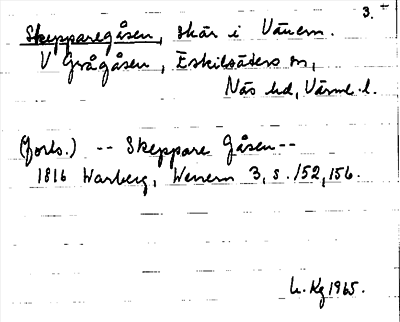 3.
Skepparegåsen, skär i Vänern.
V Grågåsen, Eskilsäters sn,
Näs hd, Värml. l.
(forts.) -- Skeppare Gåsen --
1816 Warberg, Wenern 3, s. 152, 156.
L. Kg 1965.